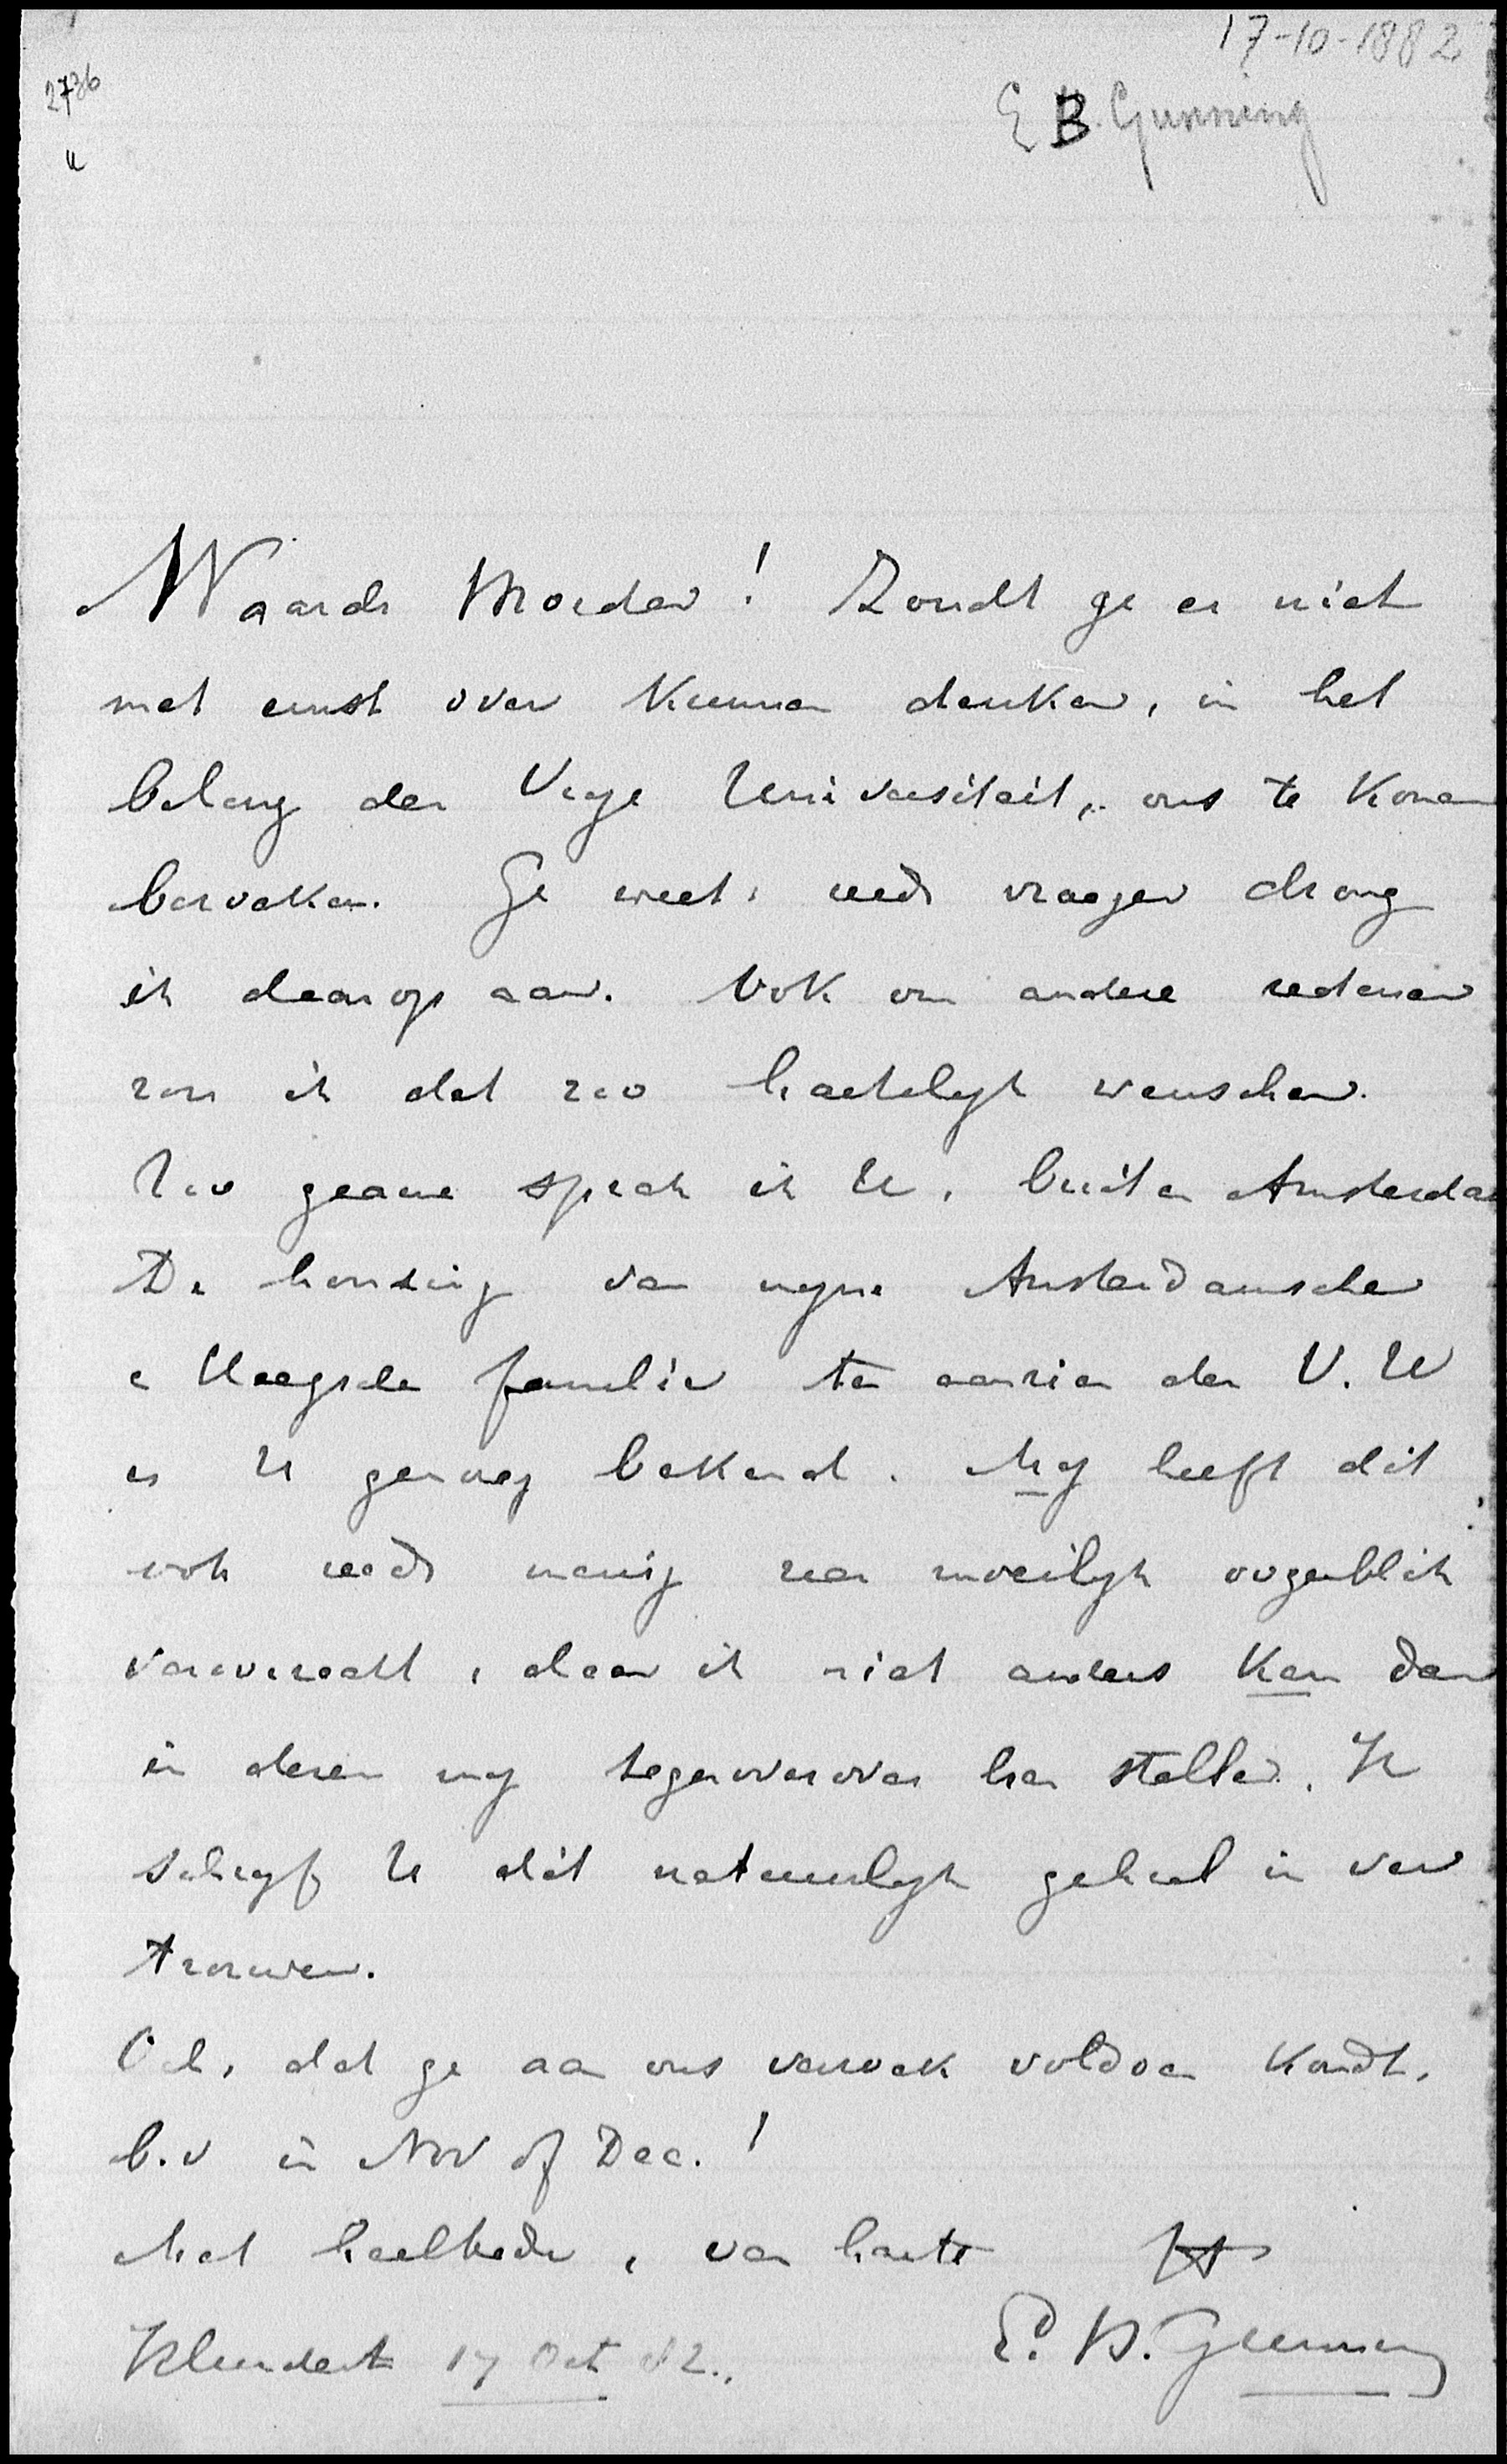 17-10-1882
2736
u
E B. Gunning
Waarde Broeder! Zoudt ge er niet
met ernst over kunnen denken, in het
belang der Vrije Universiteit, ons te komen
bezoeken. Ge weet, reeds vroeger drong
ik daarop aan. Ook om andere redenen
zou ik dat zoo hartelijk wenschen.
Zoo gaarne sprak ik U, buiten Amsterdam
De houding van mijne Amsterdamsche
e Haagsche familie ten aanzien der V.U
is U genoeg bekend. Mij heeft dit
ook reeds menig zeer moeilijk oogenblik
veroorzaakt, daar ik niet anders kan dan
in dezen mij tegenoverover hen stellen. Ik
schrijf U dit natuurlijk geheel in ver
trouwen.
Och, dat ge aan ons verzoek voldoen kondt,
b.v in Nov of Dec.!
Met heelbede, van harte
Klundert 17 Oct 82.,
E. B. Gunning